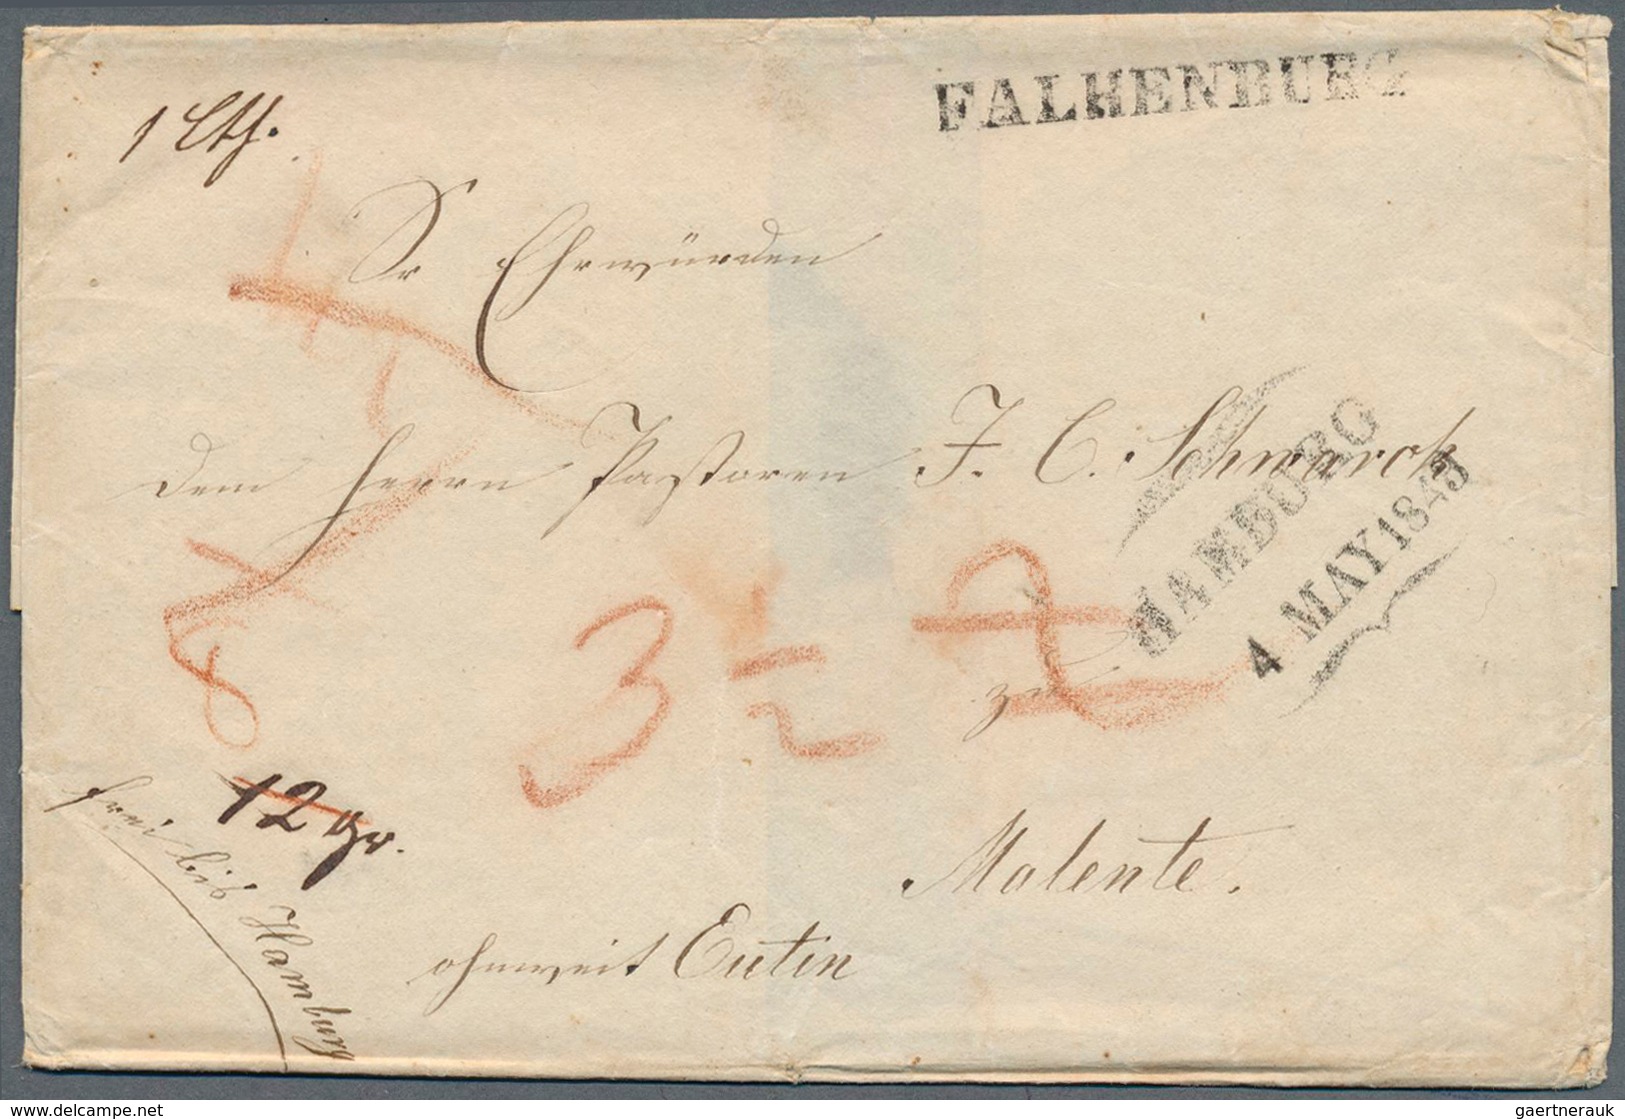 FALKENBURG
1 Lth.
Sr Ehrwürden
dem Herrn Pastoren J. C. Schwarck
HAMBURG
4 MAY 1843
3 1/2
zu
12 gr.
frei bis Hamburg
Malente.
ohnweit Eutin
www.delcampe.net
gaertnerauk